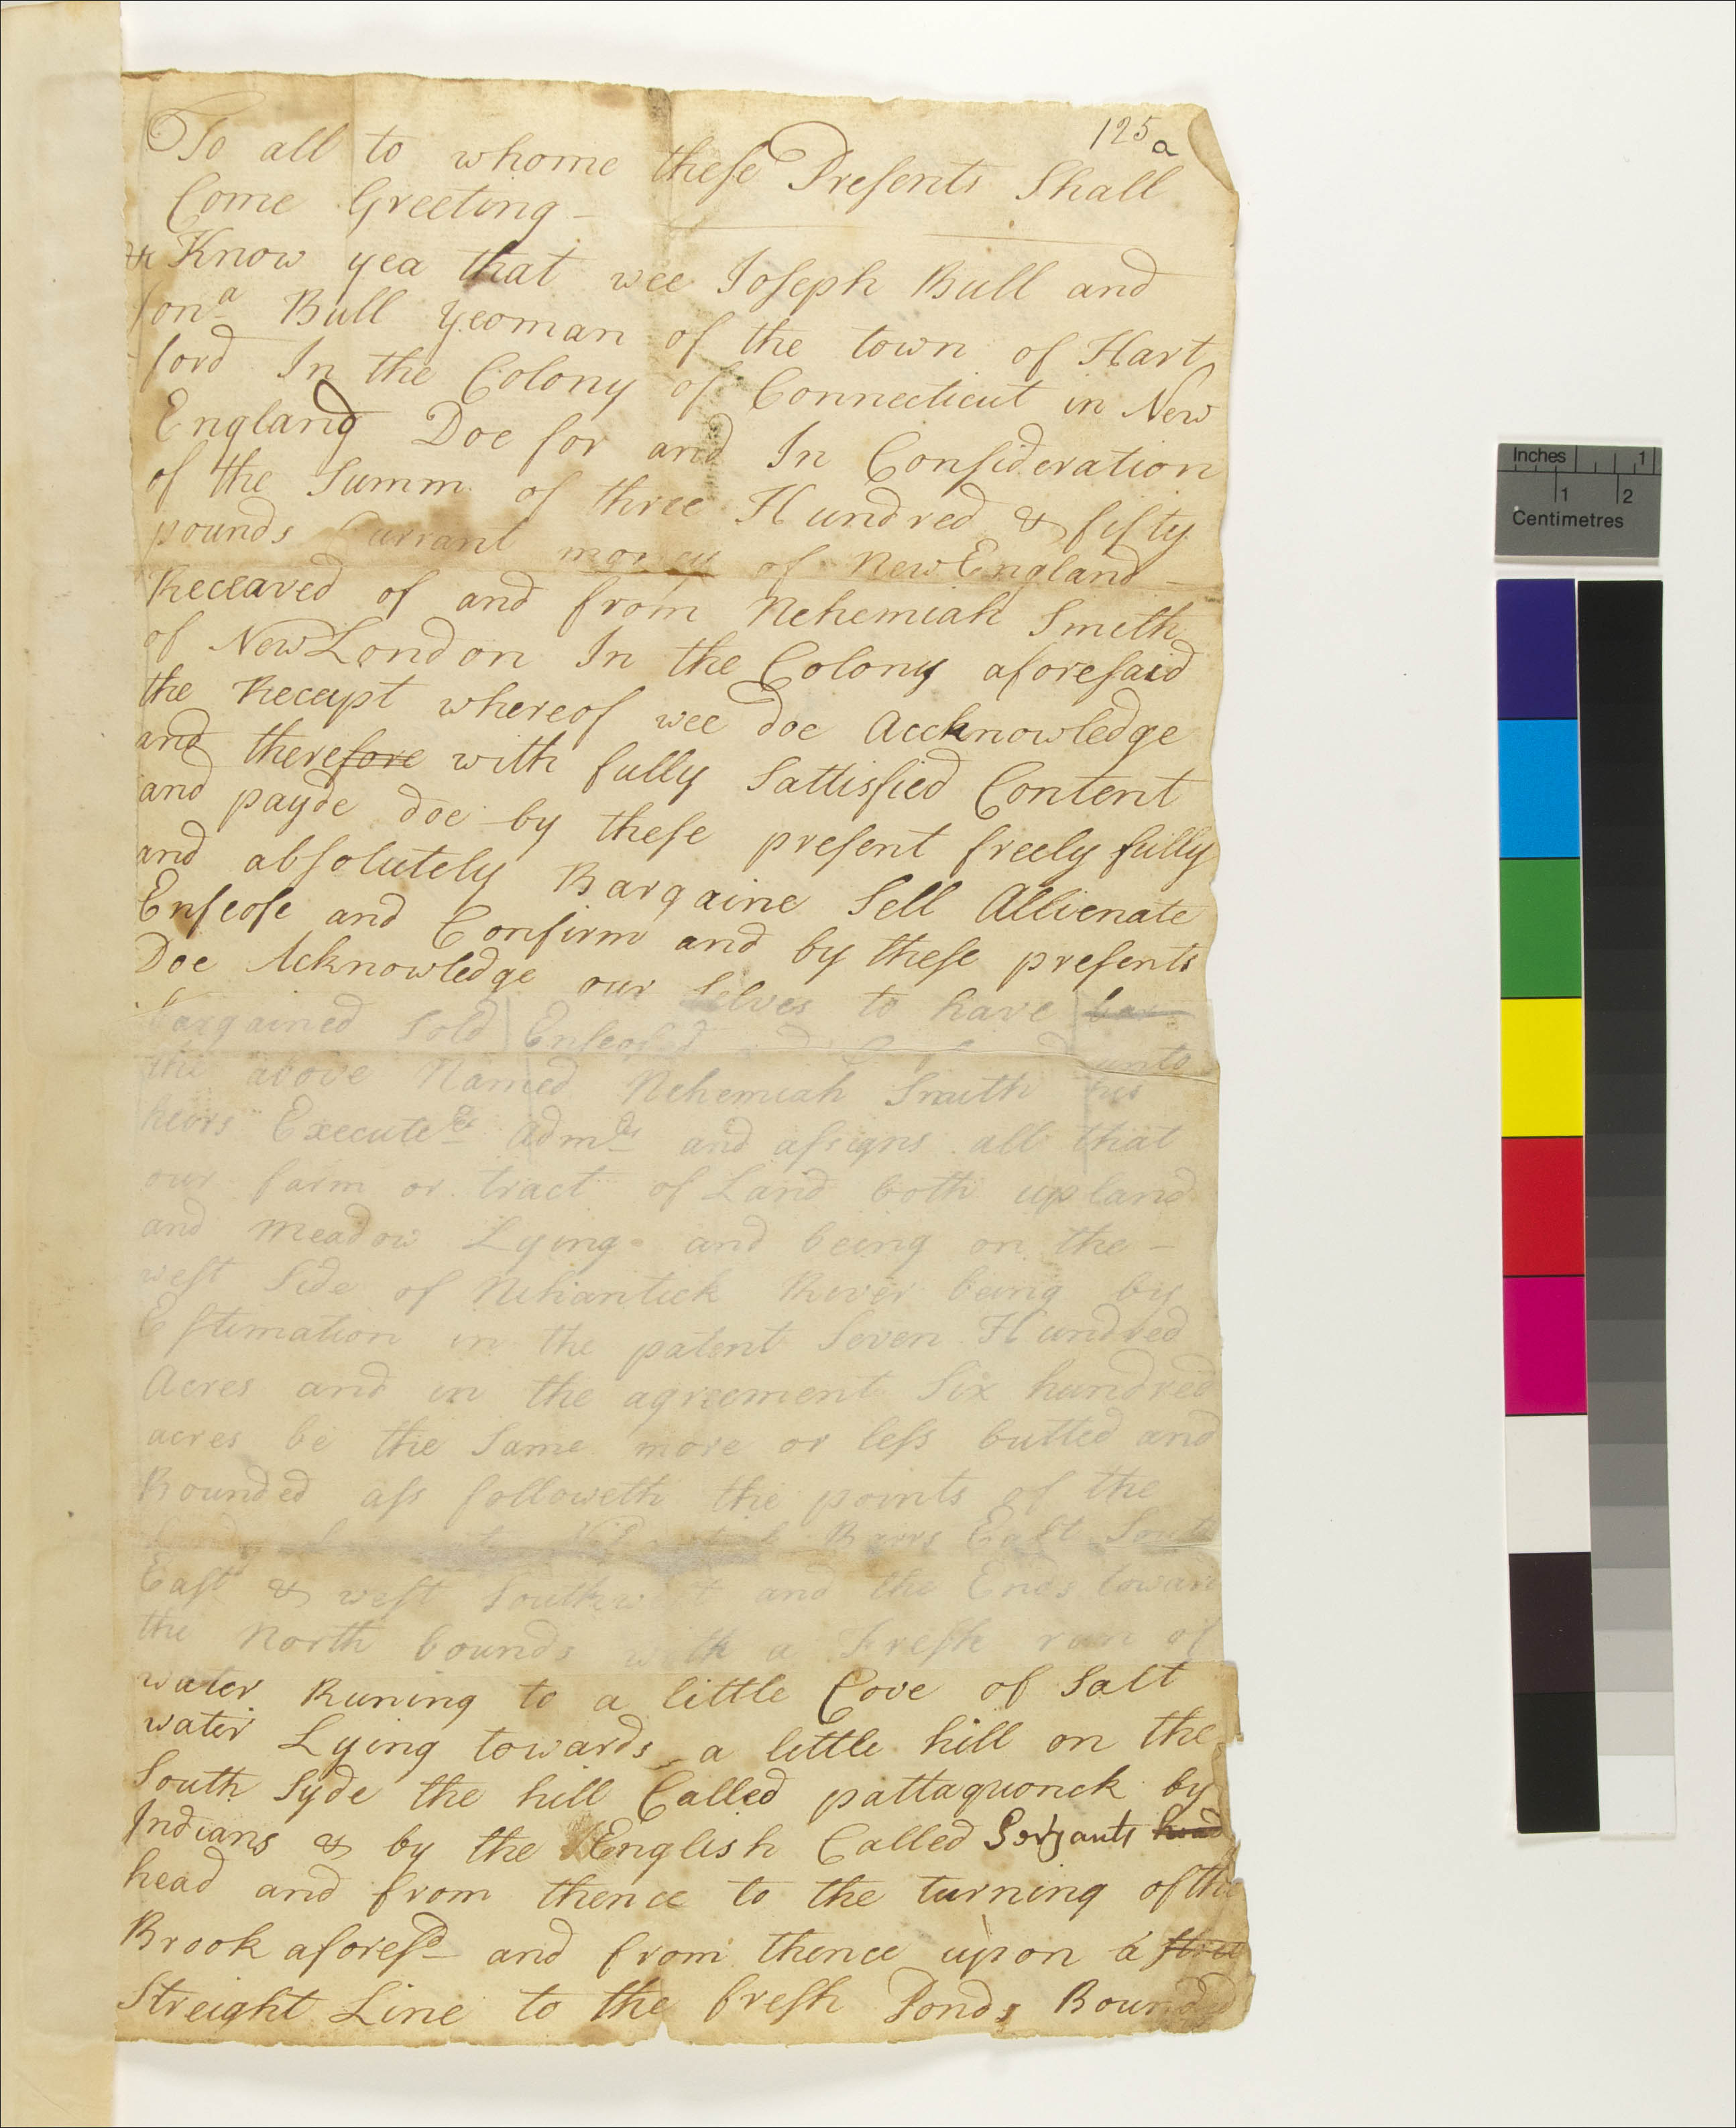 125a
To all to whome these Presents Shall
Come Greeting -
Know yea that wee Joseph Bull and
Jonª Bull yeoman of the town of Hart
ford In the Colony of Connecticut in New
England Doe for and In Consideration
of the Summ of three Hundred & fifty
pounds Currant money of New England -
Receaved of and from Nehemiah Smith
of New London In the Colony aforesaid
the Receipt whereof wee doe Accknowledge
and therefore with fully Sattisfied Content
and payde doe by these present freely fully
and absolutely Bargaine Sell Allienate
Enfeofe and Confirm and by these presents
Doe Acknowledge our Selves to have bar
bargained Sold Enfeofed unto
the above Named Nehemiah Smith his
heirs Executers Admrs and assigns all that
our farm or tract of Land both upland
and meadow Lying and being on the -
west Side of Nihantick River being by
Estimation in the patent Seven Hundred
Acres and in the agreement Six hundred
acres be the Same more or less butted and
Bounded ass followeth the points of the
Barrs East South
East & west Southwest and the Ends toward
the North bounds with a Fresh run of
water Runing to a little Cove of Salt
water Lying towards a little hill on the
South Syde the hill Called pattaquonck by
Indians & by the English Called Serjants head
head and from thence to the turning of the
Brook aforesd and from thence upon a
Streight Line to the fresh Ponds Bounded
Inches 1
1 2
Centimetres